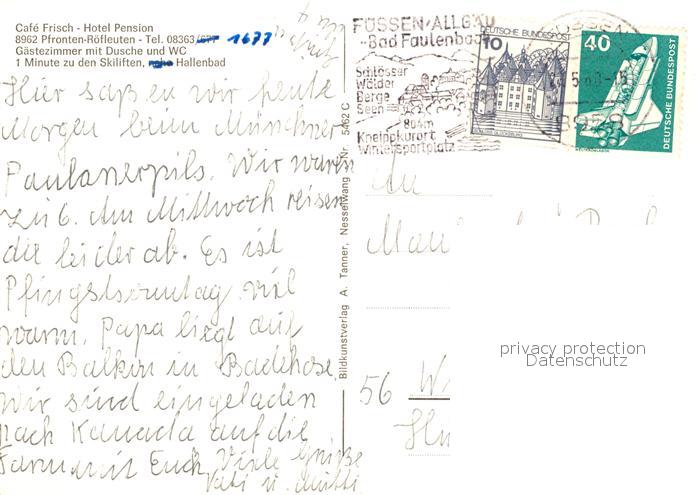 Café Frisch - Hotel Pension
8962 Pfronten-Röfleuten - Tel. 08363/677 1677
Gästezimmer mit Dusche und WC
1 Minute zu den Skiliften, nahe Hallenbad
Hier saßen wir heute
Morgen beim Münchner
Paulanerpils. Wir waren
zu 6. Am Mittwoch reisen
die leider ab. Es ist
Pfingstsonntag. viel
warm. Papa liegt auf
den Balkon in Badehose.
Wir sind eingeladen
nach Kanada auf die
Farm mit Euch. Viele Grüße
Vati u. Mutti
Bildkunstverlag A. Tanner, Nesselwang Nr. 5462 C
FÜSSEN/ALLGÄU
-Bad Faulenbad
Schlösser
Wälder
Berge
Seen
804m
Kneippkurort
Wintersportplatz
DEUTSCHE BUNDESPOST
10
40
DEUTSCHE BUNDESPOST
An
56
privacy protection
Datenschutz